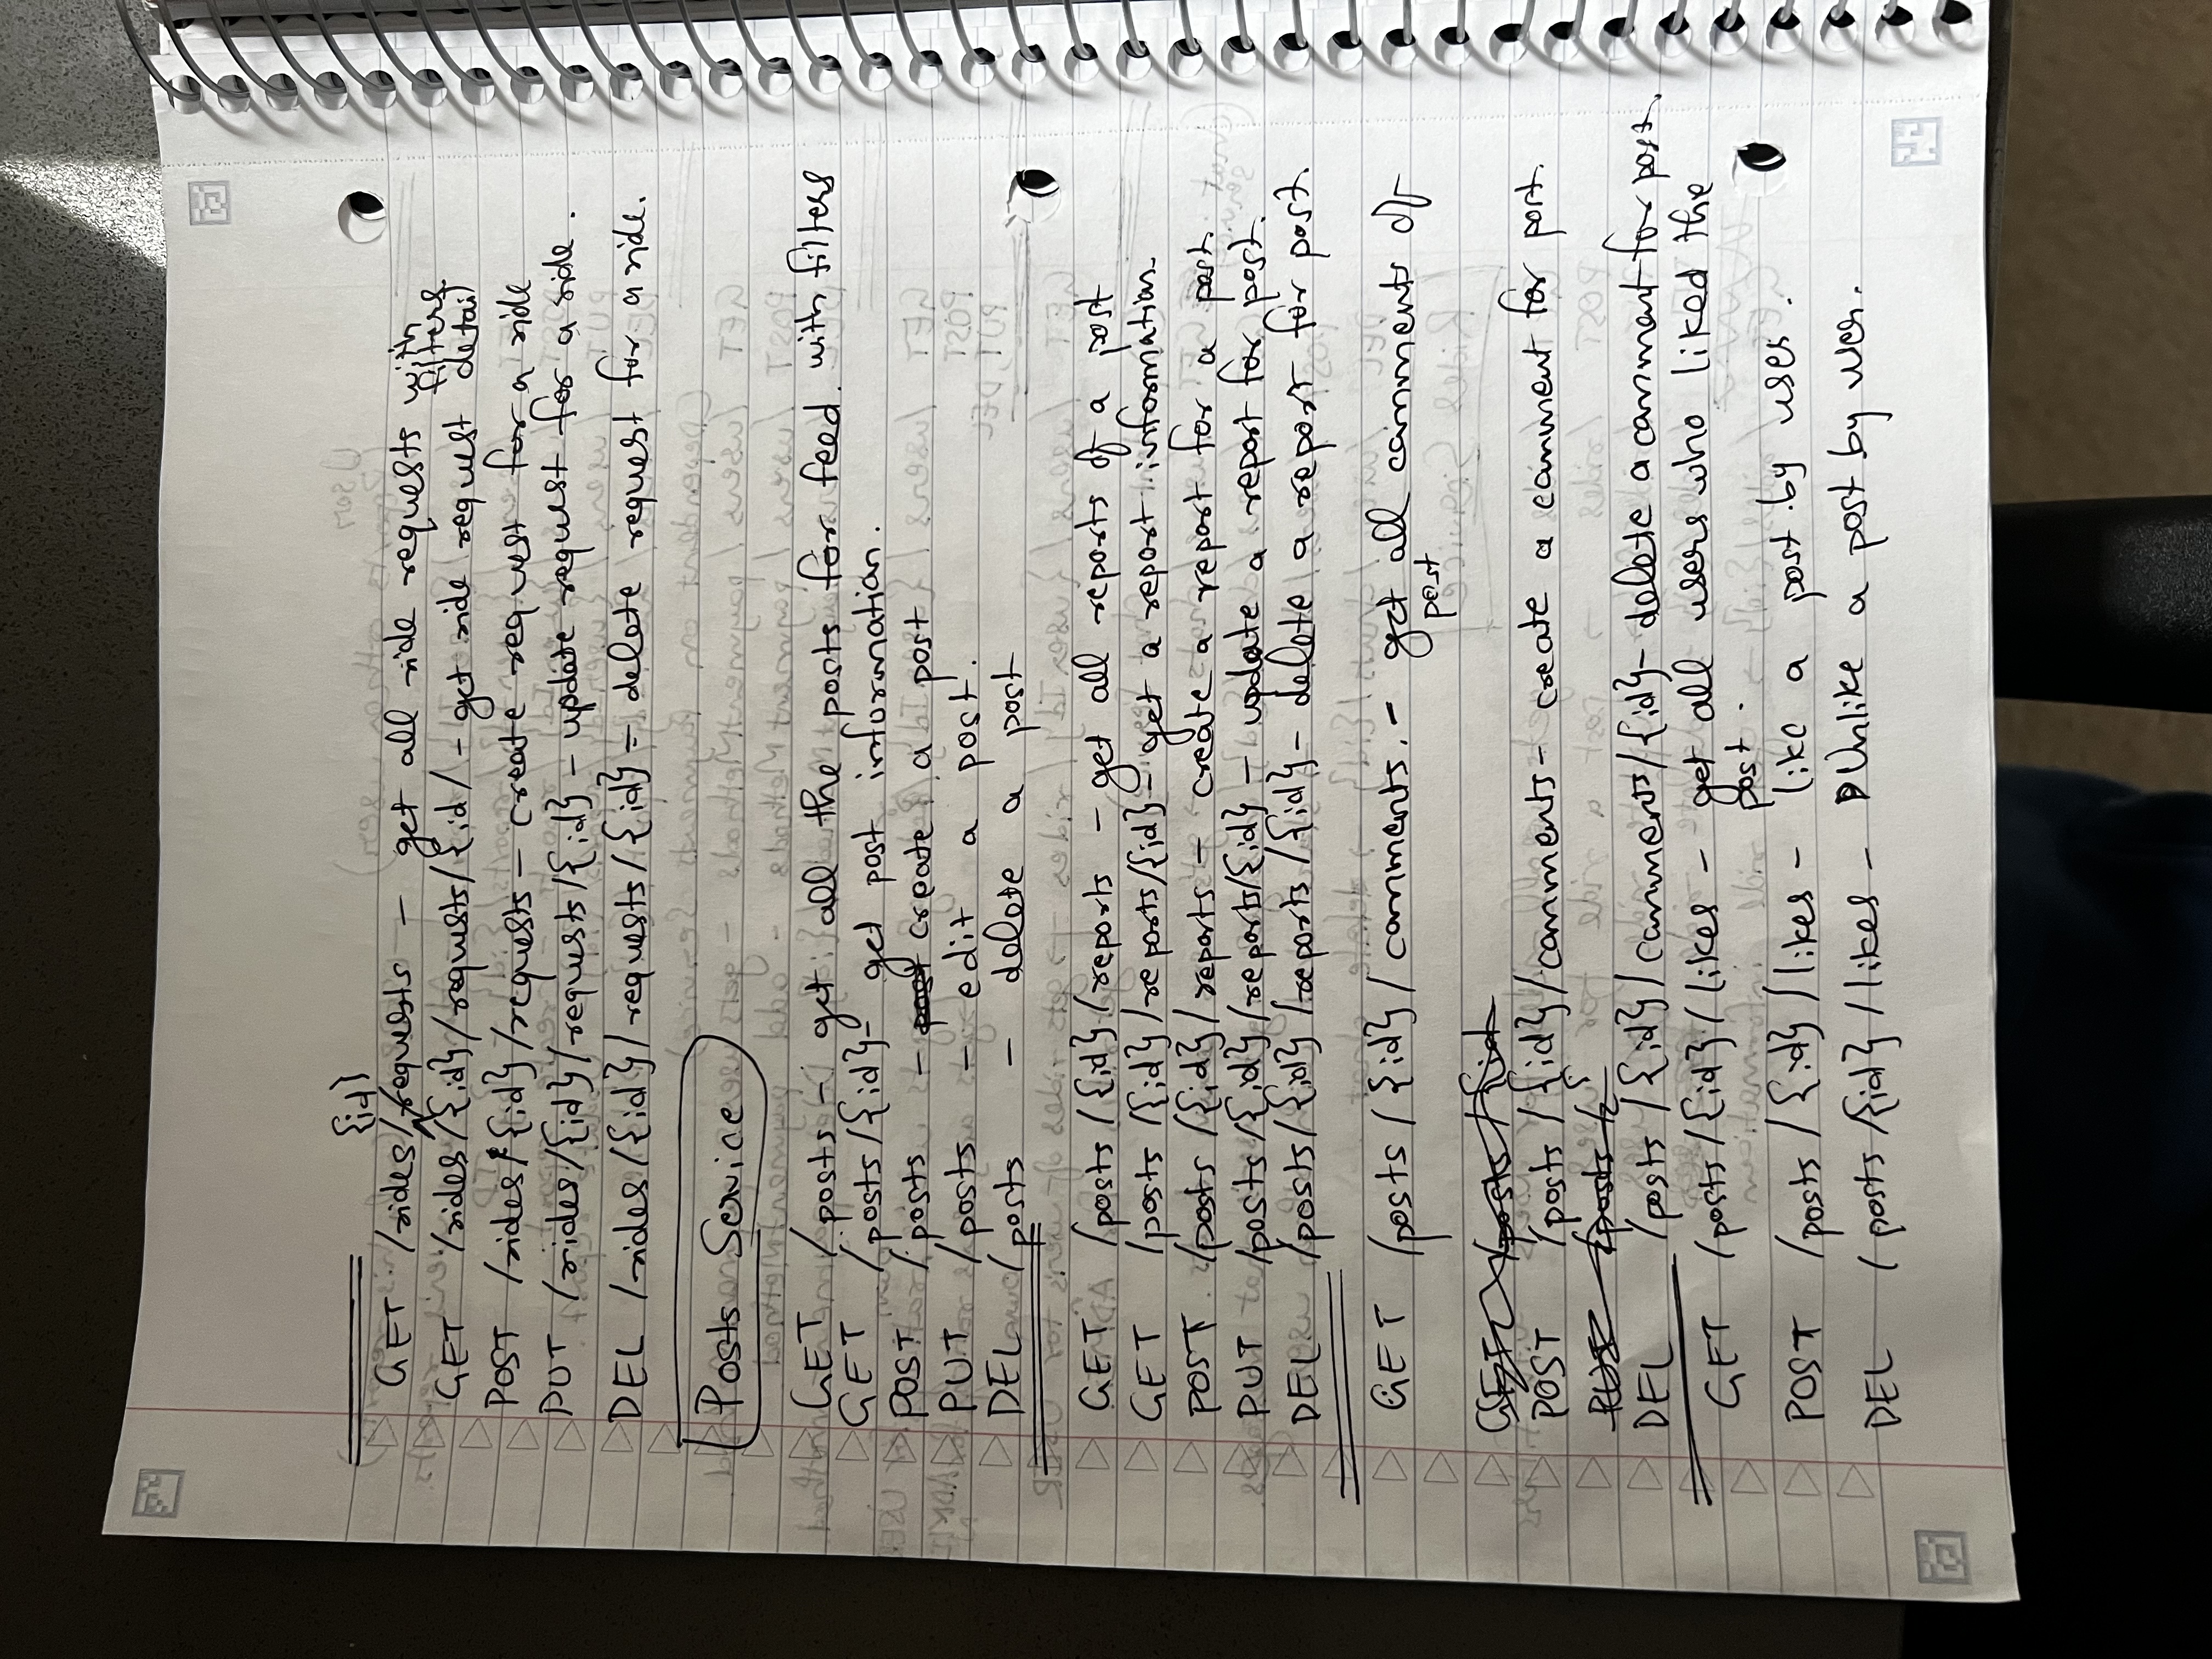 {id}
GET /rides/requests - get all ride requests with
filters
GET /rides/{id}/requests/{id/ - get ride request detail
POST /rides/{id}/requests - create request for a ride
PUT /rides/{id}/requests/{id} - update request for a ride.
DEL /rides/{id}/requests/{id} - delete request for a ride.
Posts Service
GET /posts - get all the posts for feed. with filters
GET /posts/{id} - get post information.
POST /posts - post create a post
PUT /posts - edit a post.
DEL /posts - delete a post
GET /posts/{id}/reports - get all reports of a post
GET /posts/{id}/reports/{id} - get a report information
POST /posts/{id}/reports - create a report for a post.
PUT /posts/{id}/reports/{id} - update a report for post.
DEL /posts/{id}/reports/{id} - delete a report for post.
GET /posts/{id}/comments. - get all comments of
post
GET /posts/{id
POST /posts/{id}/comments - create a comment for post.
PUT /posts/{
DEL /posts/{id}/comments/{id} - delete a comment for post.
GET /posts/{id}/likes - get all users who liked the
post.
POST /posts/{id}/likes - like a post by user.
DEL /posts/{id}/likes - Unlike a post by user.